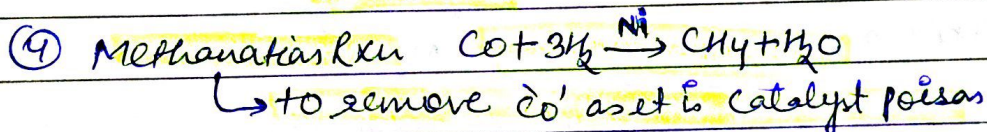 ④ Methanation Rxn CO + 3H₂ —Ni→ CH₄ + H₂O
↳ to remove 'CO' as it is catalyst poison